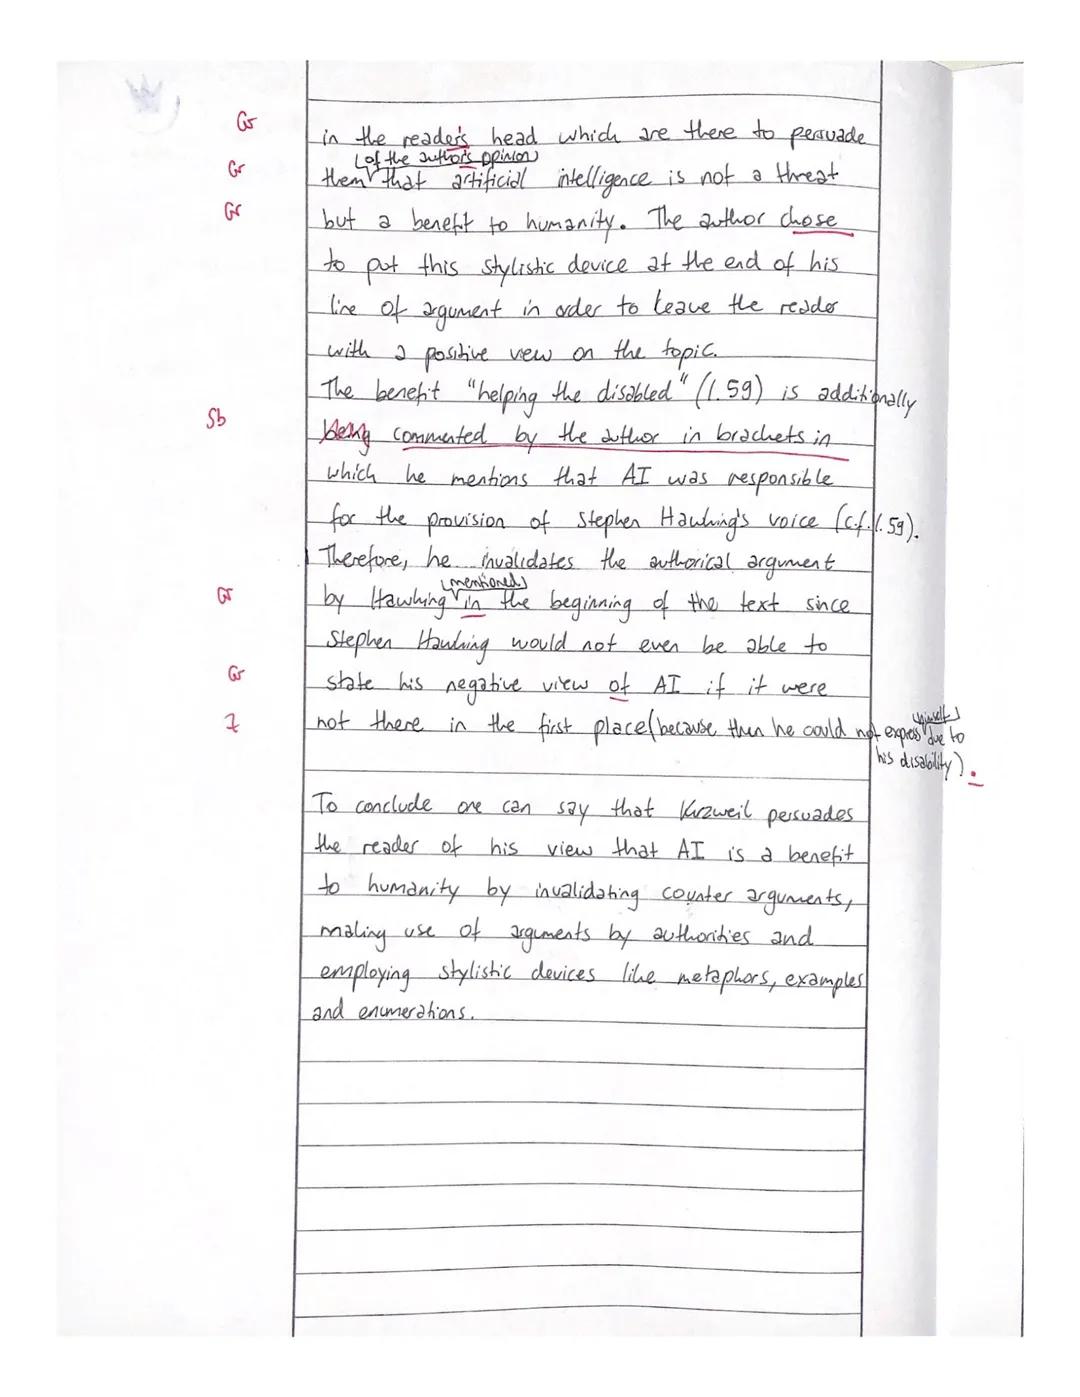 Gr
in the reader's head which are there to persuade
(of the author's opinion)
Gr
them that artificial intelligence is not a threat
Gr
but a benefit to humanity. The author chose
to put this stylistic device at the end of his
line of argument in order to leave the reader
with a positive view on the topic.
The benefit "helping the disabled" (l. 59) is additionally
Sb
being commented by the author in brackets in
which he mentions that AI was responsible
for the provision of Stephen Hawking's voice (c.f. l. 59).
Therefore, he invalidates the authorical argument
(mentioned)
Gr
by Hawking in the beginning of the text since
Stephen Hawking would not even be able to
Gr
state his negative view of AI if it were
Z
not there in the first place (because then he could not express (himself) due to
his disability).
To conclude one can say that Kurzweil persuades
the reader of his view that AI is a benefit
to humanity by invalidating counter arguments,
making use of arguments by authorities and
employing stylistic devices like metaphors, examples
and enumerations.